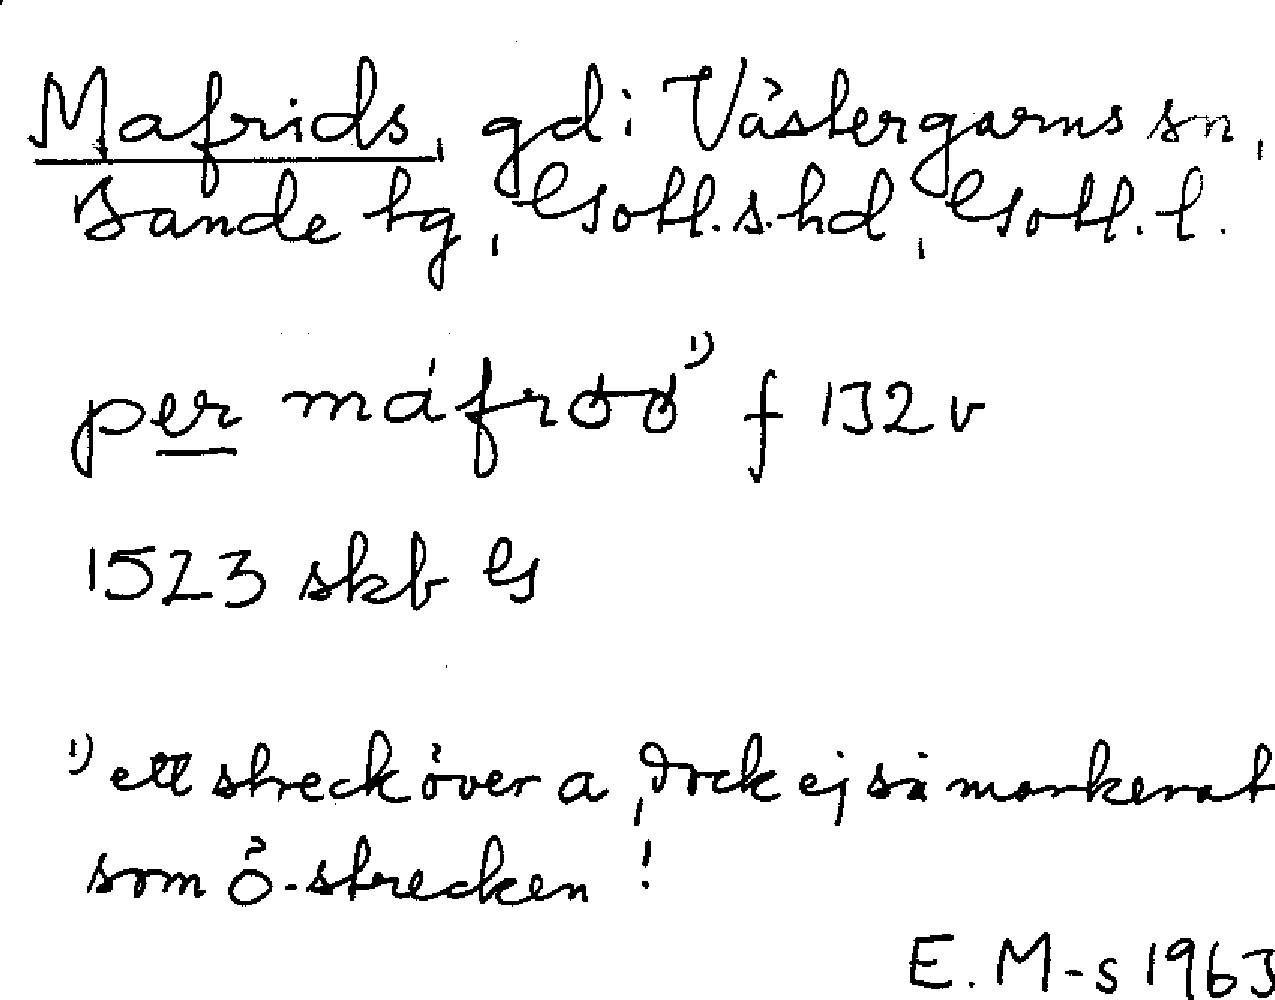 Mafrids, gd i Västergarns sn,
Bande tg, Gotl. s. hd, Gotl. l.
per máfröö ¹⁾ f 132 v
1523 skb G
¹⁾ ett streck över a, dock ej så markerat
som ö-strecken!
E. M-s 1963